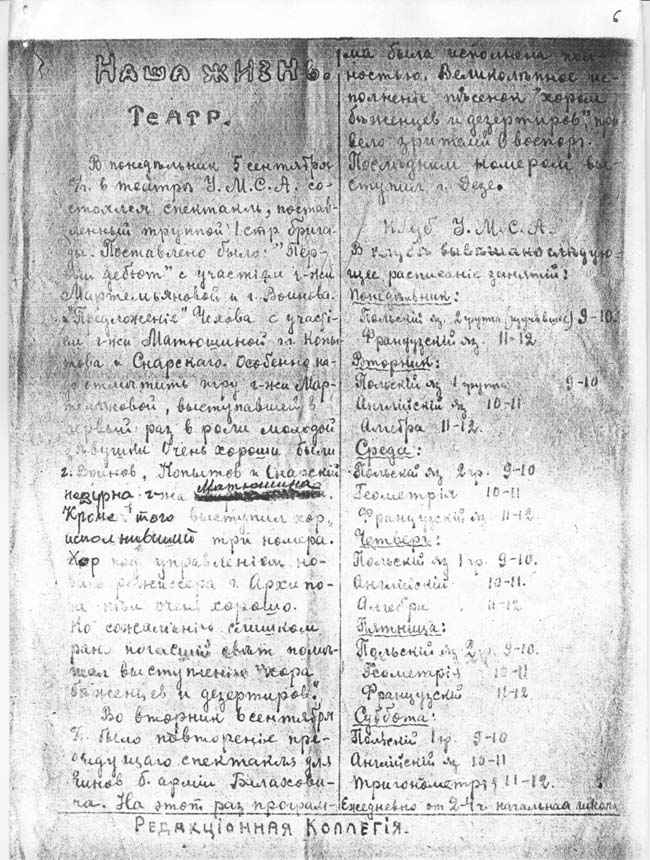 6
НАША ЖИЗНЬ.
ТЕАТР.
В понедѣльник 5 сентября
с/г. в театрѣ У.М.С.А. со-
стоялся спектакль, постав-
ленный труппой 1 стр. брига-
ды. Поставлено было: "Пер-
вый дебют" с участіем г-жи
Мартемьяновой и г. Воинова.
и "Предложеніе" Чехова с участі-
ем г-жи Матюшиной г.г. Копы-
това и Снарскаго. Особенно на-
до отмѣтить игру г-жи Мар-
темьяновой, выступавшей в
первый раз в роли молодой
дѣвушки. Очень хороши были
г. Воинов, Копытов и Снарскій
недурна г-жа Матюшина.
Кромѣ того выступил хор,
исполнившій три номера.
Хор под управленіем но-
ваго режиссера г. Архипо-
ва пѣл очень хорошо.
Ко сожалѣнію слишком
рано погасшій свѣт помѣ-
шал выступленію "хора
бѣженцев и дезертиров".
Во вторник 6 сентября
с/г. было повтореніе пре-
дыдущаго спектакля для
чинов б. арміи Балахови-
ча. На этот раз програм-
ма была исполнена пол-
ностью. Великолѣпное ис-
полненіе пѣсенок "хором
бѣженцев и дезертиров" при-
вело зрителей в восторг.
Послѣдним номером вы-
ступил г. Дезе.
Клуб У.М.С.А.
В клубѣ вывѣшано слѣдую-
щее расписаніе занятій:
Понедѣльник:
Польскій яз. 2 группа 9-10.
Французскій яз. 11-12
Вторник:
Польскій яз 1 группа 9-10
Англійскій яз 10-11
Алгебра 11-12.
Среда:
Польскій яз 2 гр. 9-10
Геометрія 10-11
Французскій яз. 11-12.
Четверг:
Польскій яз 1 гр. 9-10.
Англійскій 10-11.
Алгебра 11-12
Пятница:
Польскій яз 2 гр. 9-10.
Геометрія 10-11
Французскій 11-12
Суббота:
Польскій 1 гр. 9-10
Англійскій яз 10-11
Тригонометрія 11-12.
Ежедневно от 2-4 ч. начальная школа
РЕДАКЦІОННАЯ КОЛЛЕГІЯ.